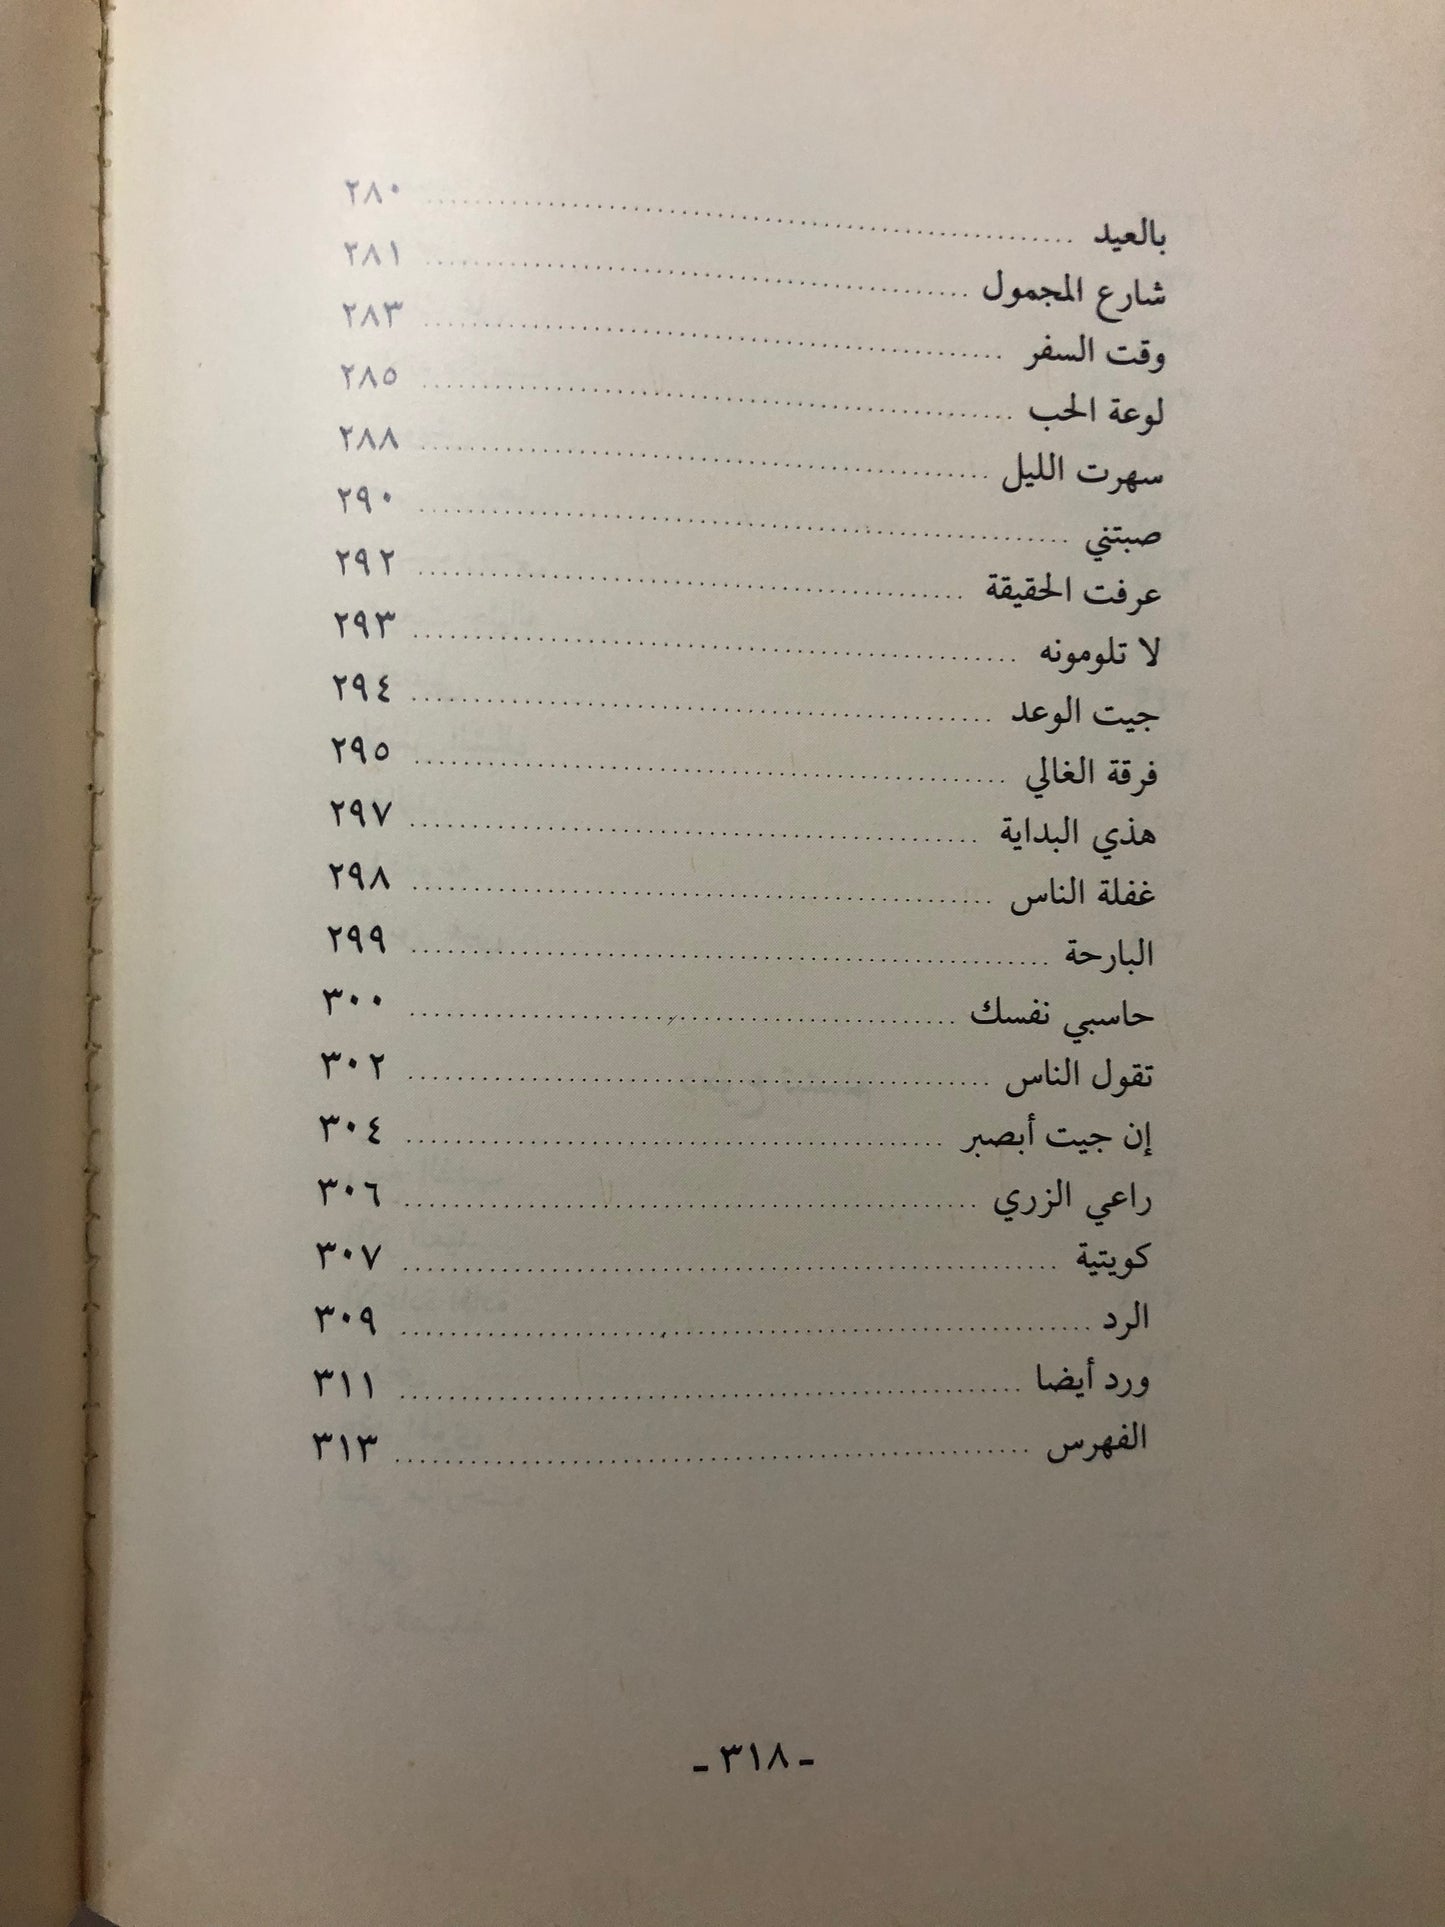 بالعيد ........ ٢٨٠
شارع المجمول ........ ٢٨١
وقت السفر ........ ٢٨٣
لوعة الحب ........ ٢٨٥
سهرت الليل ........ ٢٨٨
صبتني ........ ٢٩٠
عرفت الحقيقة ........ ٢٩٢
لا تلومونه ........ ٢٩٣
جيت الوعد ........ ٢٩٤
فرقة الغالي ........ ٢٩٥
هذي البداية ........ ٢٩٧
غفلة الناس ........ ٢٩٨
البارحة ........ ٢٩٩
حاسبي نفسك ........ ٣٠٠
تقول الناس ........ ٣٠٢
إن جيت أبصبر ........ ٣٠٤
راعي الزري ........ ٣٠٦
كويتية ........ ٣٠٧
الرد ........ ٣٠٩
ورد أيضا ........ ٣١١
الفهرس ........ ٣١٣
- ٣١٨ -